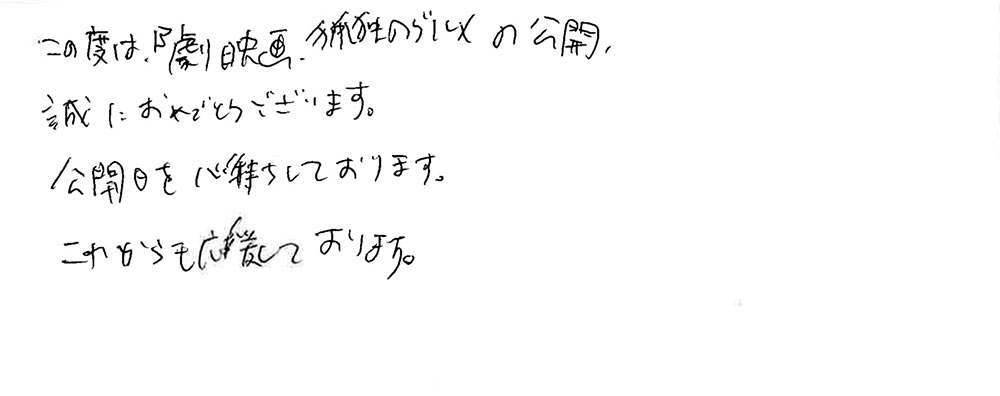 この度は、『劇映画 孤独のグルメの公開、
誠におめでとうございます。
公開日を心待ちしております。
これからも応援しております。